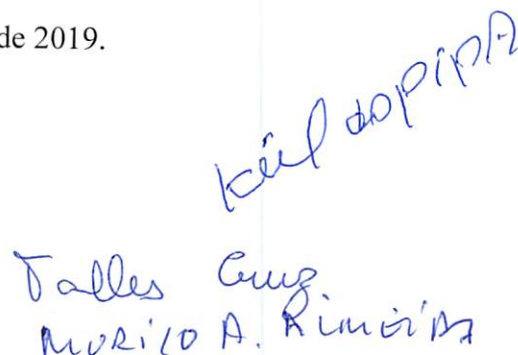 de 2019.
Kiel do PipA
Talles Cruz
MURILO A.